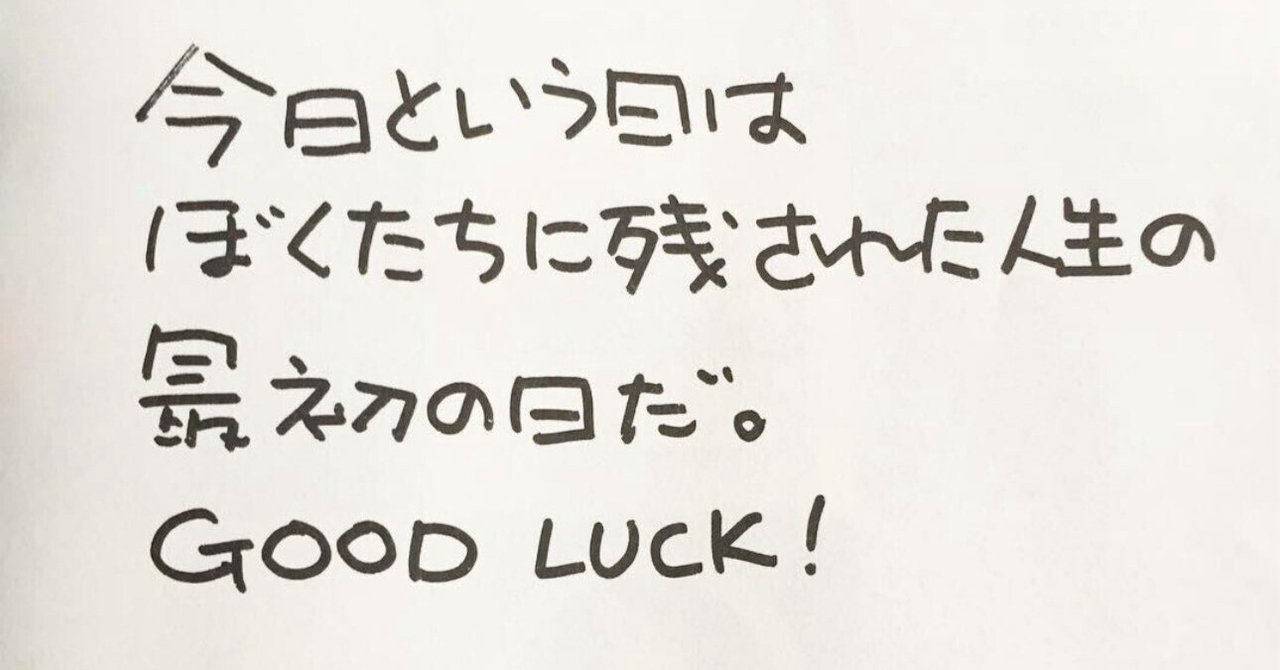 今日という日は
ぼくたちに残された人生の
最初の日だ。
GOOD LUCK!